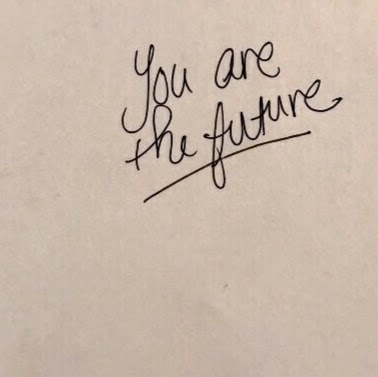 You are
the future